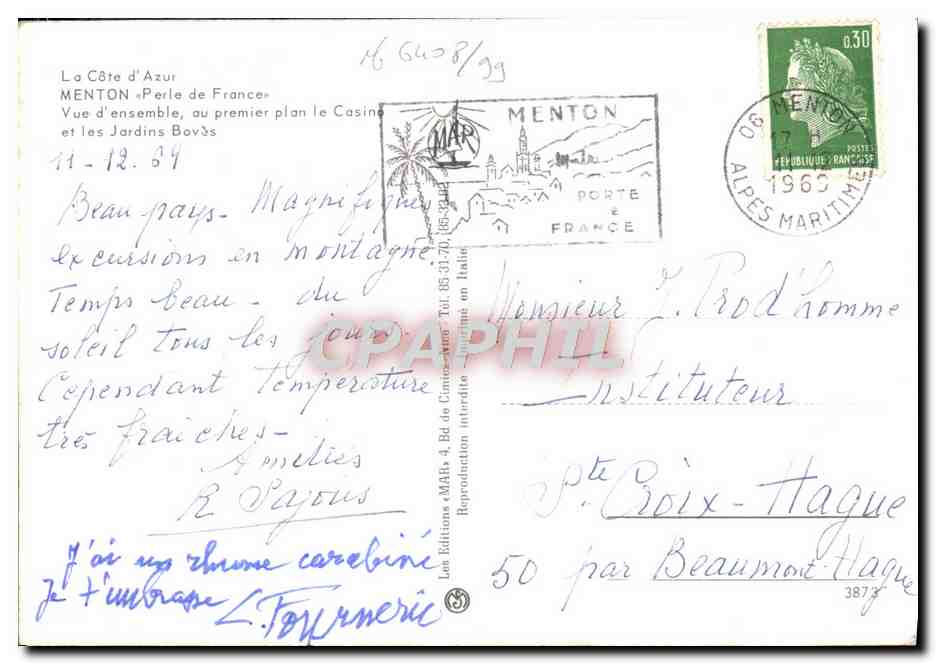 M 6408/99
La Côte d'Azur
MENTON «Perle de France»
Vue d'ensemble, au premier plan le Casino
et les Jardins Bovès
11-12.69
Beau pays. Magnifiques
excursions en montagne.
Temps beau - du
soleil tous les jours.
Cependant température
très fraiches -
Amitiés
R Pajous
J'ai un rhume carabiné
Je t'embrasse L. Fournerie
Les Editions «MAR» 4, Bd de Cimiez-Nice Tél. 85-31-70, 85-33-02
Reproduction interdite - Imprimé en Italie
MAR
MENTON
PORTE
FRANCE
06 MENTON
17 H
1969
ALPES MARITIMES
0,30
POSTES
REPUBLIQUE FRANÇAISE
Monsieur J. Prod'homme
Instituteur
Ste Croix-Hague
50 par Beaumont-Hague
3873
CPAPHIL